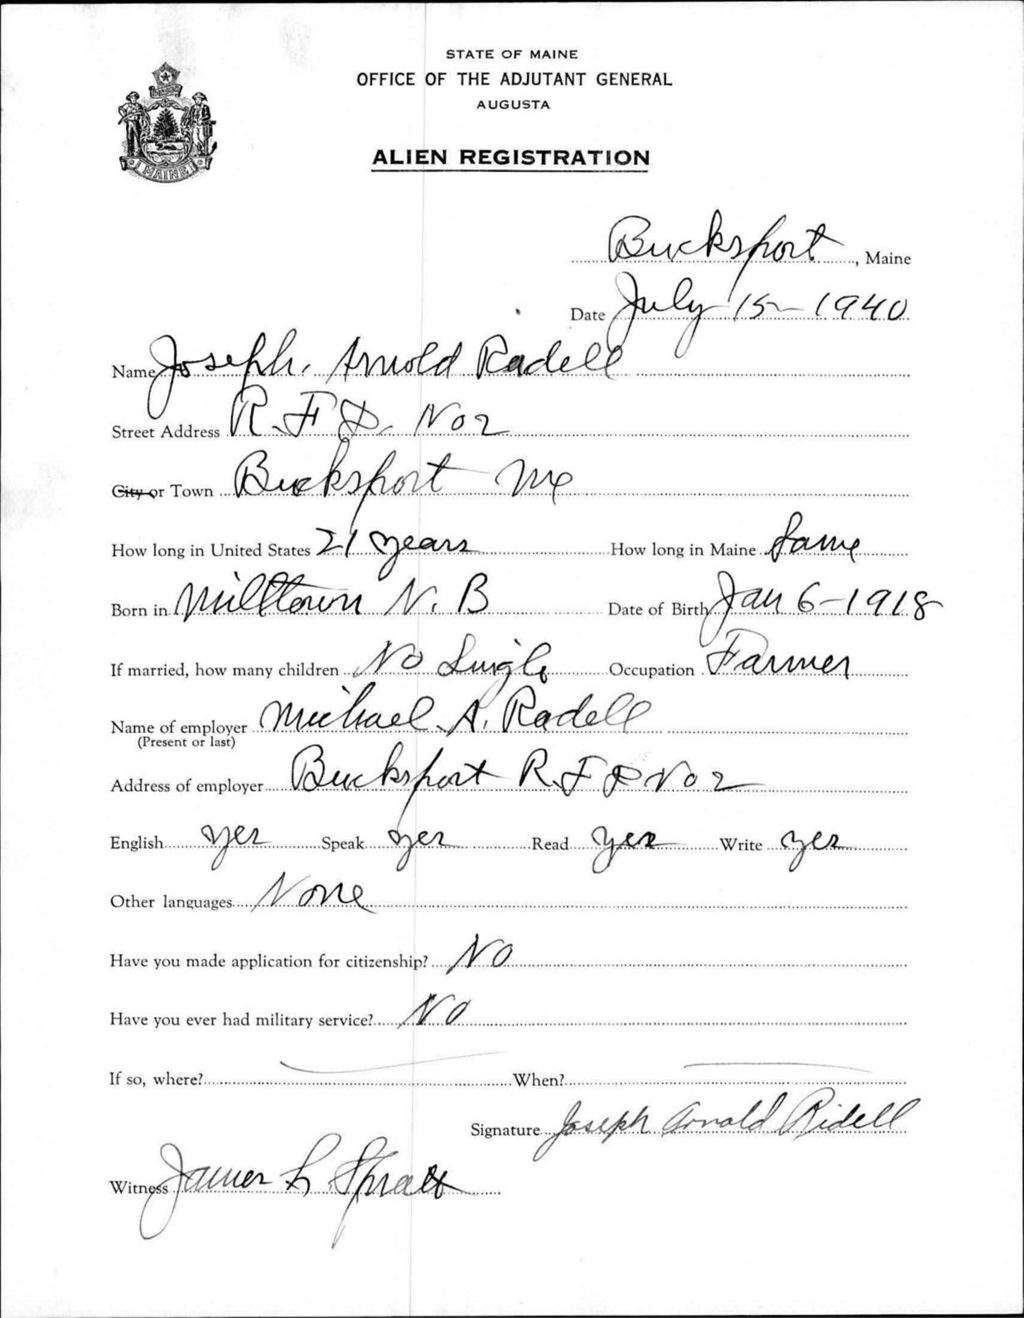 STATE OF MAINE
OFFICE OF THE ADJUTANT GENERAL
AUGUSTA
ALIEN REGISTRATION
MAINE
Bucksport, Maine
Date July 15 - 1940
Name Joseph. Arnold Radell
Street Address R. F. D. No 2
City or Town Bucksport Me
How long in United States 21 years How long in Maine Same
Born in Milltown N. B Date of Birth Jan 6 - 1918
If married, how many children No Single Occupation Farmer
Name of employer Michael A. Radell
(Present or last)
Address of employer Bucksport R. F D No 2
English yes Speak yes Read yes Write yes
Other languages None
Have you made application for citizenship? No
Have you ever had military service? No
If so, where? When?
Signature Joseph Arnold Ridell
Witness James L. Spratt